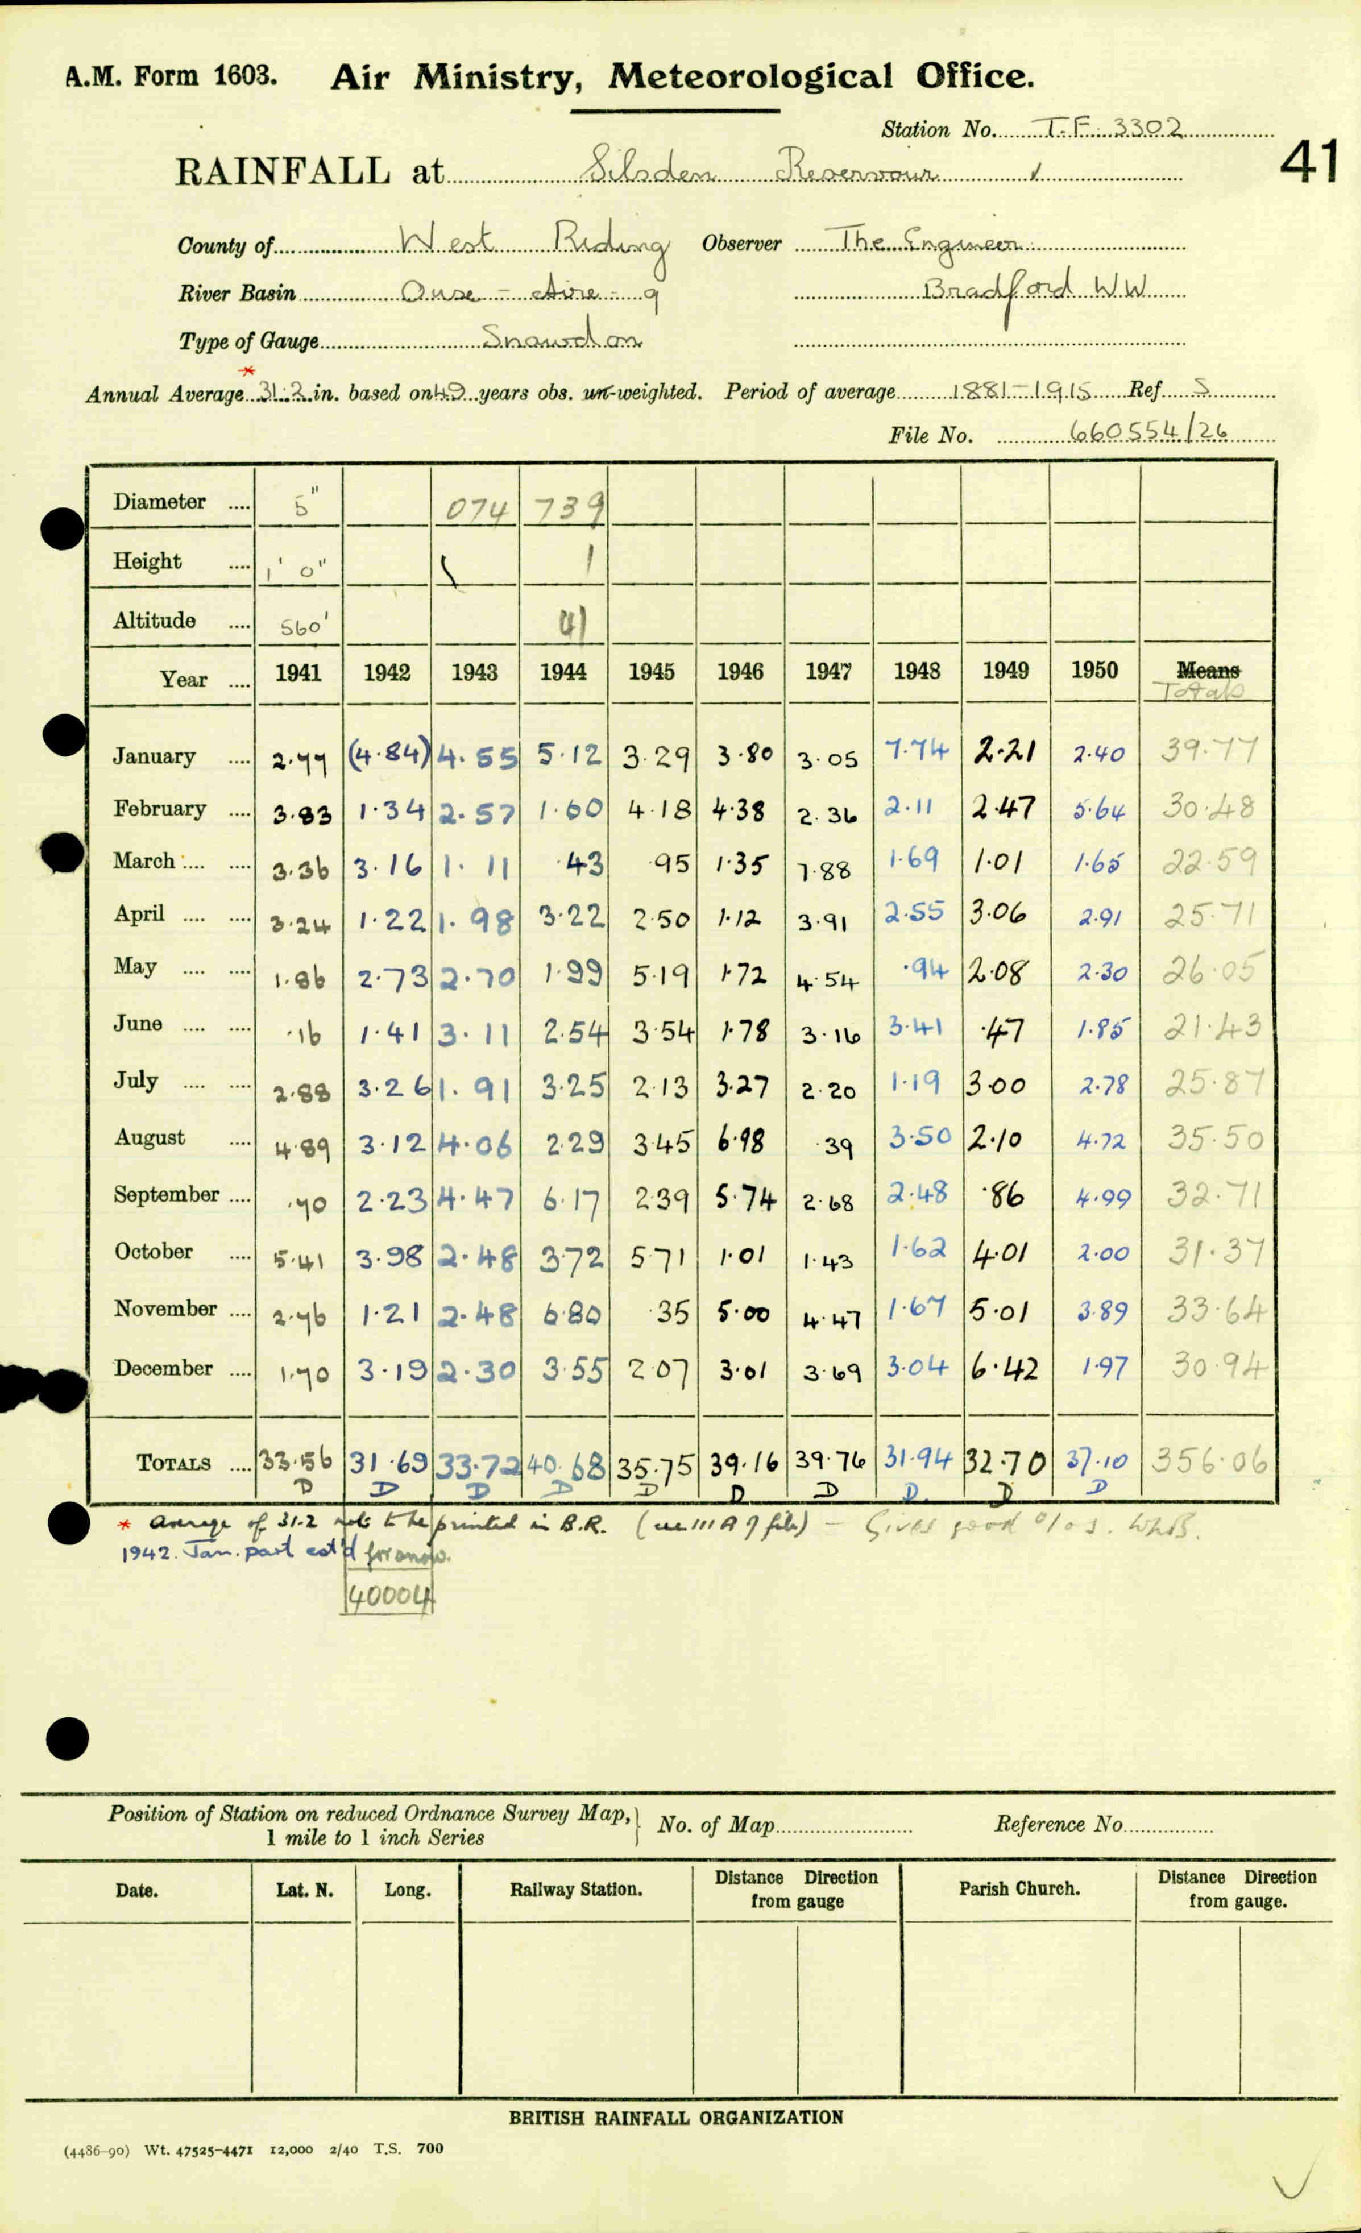 A.M. Form 1603. Air Ministry, Meteorological Office.
Station No. T.F. 3302
41
RAINFALL at Silsden Reservoir
County of West Riding Observer The Engineer
River Basin Ouse - Aire - 9 Bradford WW
Type of Gauge Snowdon
*
Annual Average 31.2 in. based on 49 years obs. un-weighted. Period of average 1881-1915 Ref. S
File No. 660554/26
Diameter .... 5" 074 739
Height .... 1' 0" 1
Altitude .... 560' 41
Year .... 1941 1942 1943 1944 1945 1946 1947 1948 1949 1950 Means
Totals
January .... 2.77 (4.84) 4.55 5.12 3.29 3.80 3.05 7.74 2.21 2.40 39.77
February .... 3.83 1.34 2.57 1.60 4.18 4.38 2.36 2.11 2.47 5.64 30.48
March .... .... 3.36 3.16 1.11 .43 .95 1.35 7.88 1.69 1.01 1.65 22.59
April .... .... 3.24 1.22 1.98 3.22 2.50 1.12 3.91 2.55 3.06 2.91 25.71
May .... .... 1.86 2.73 2.70 1.99 5.19 1.72 4.54 .94 2.08 2.30 26.05
June .... .... .16 1.41 3.11 2.54 3.54 1.78 3.16 3.41 .47 1.85 21.43
July .... .... 2.88 3.26 1.91 3.25 2.13 3.27 2.20 1.19 3.00 2.78 25.87
August .... 4.89 3.12 4.06 2.29 3.45 6.98 .39 3.50 2.10 4.72 35.50
September .... .70 2.23 4.47 6.17 2.39 5.74 2.68 2.48 .86 4.99 32.71
October .... 5.41 3.98 2.48 3.72 5.71 1.01 1.43 1.62 4.01 2.00 31.37
November .... 2.76 1.21 2.48 6.80 .35 5.00 4.47 1.67 5.01 3.89 33.64
December .... 1.70 3.19 2.30 3.55 2.07 3.01 3.69 3.04 6.42 1.97 30.94
TOTALS .... 33.56 31.69 33.72 40.68 35.75 39.16 39.76 31.94 32.70 37.10 356.06
D D D D D D D D D D
* average of 31.2 not to be printed in B.R. (see 111A 9 file) - Gives good %s.
1942. Jan. part est'd for snow.
40004
Position of Station on reduced Ordnance Survey Map, No. of Map Reference No.
1 mile to 1 inch Series
Date. Lat. N. Long. Railway Station. Distance Direction from gauge Parish Church. Distance Direction from gauge.
BRITISH RAINFALL ORGANIZATION
(4486-90) Wt. 47525-4471 12,000 2/40 T.S. 700